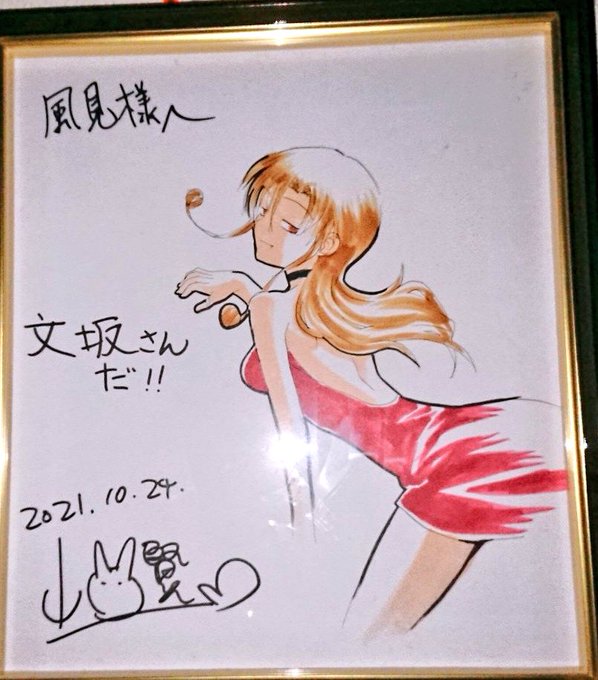 風見様へ
文坂さん
だ!!
2021.10.24.